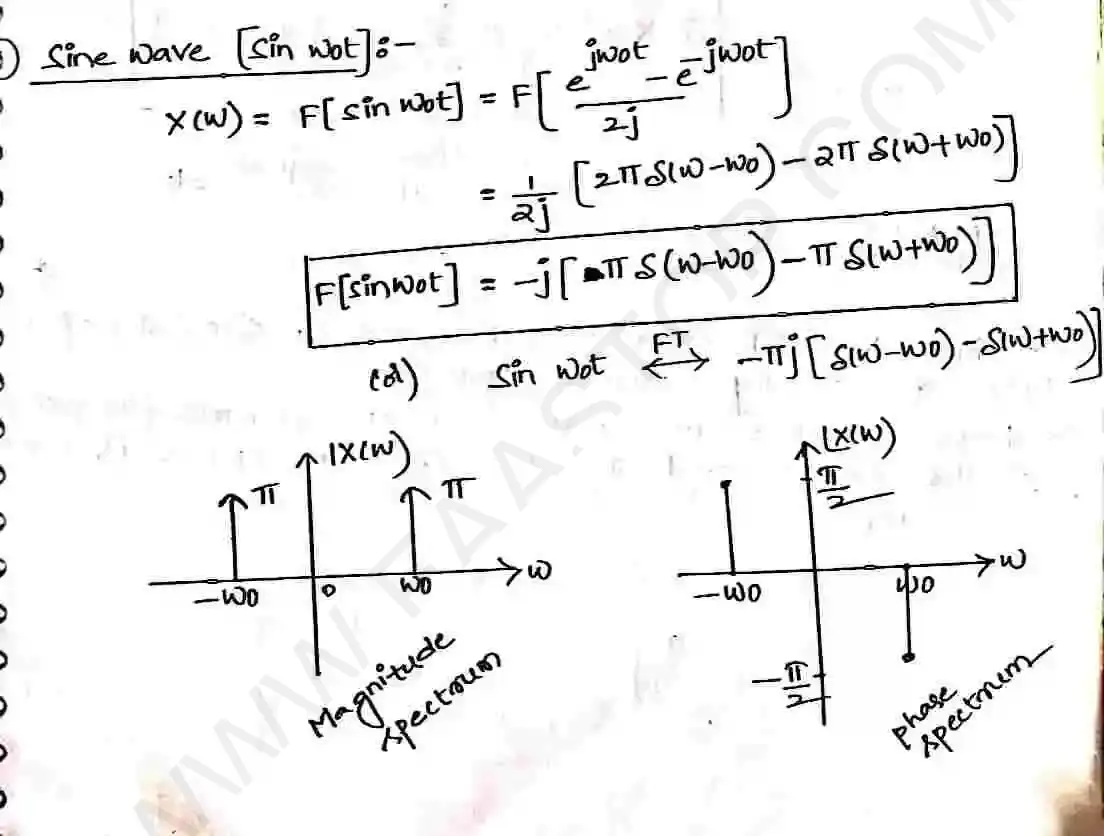 Sine wave [sin w0t]:-
X(w) = F[sin w0t] = F[ (e^jw0t - e^-jw0t) / 2j ]
= 1/2j [2π δ(w-w0) - 2π δ(w+w0)]
F[sinw0t] = -j[π δ(w-w0) - π δ(w+w0)]
(or) sin w0t ⟷ FT -πj[δ(w-w0) - δ(w+w0)]
|X(w)
π π
-w0 0 w0 w
Magnitude
spectrum
∠X(w)
π/2
-w0 w0 w
-π/2
phase
spectrum
WWW.TAASTOP.COM